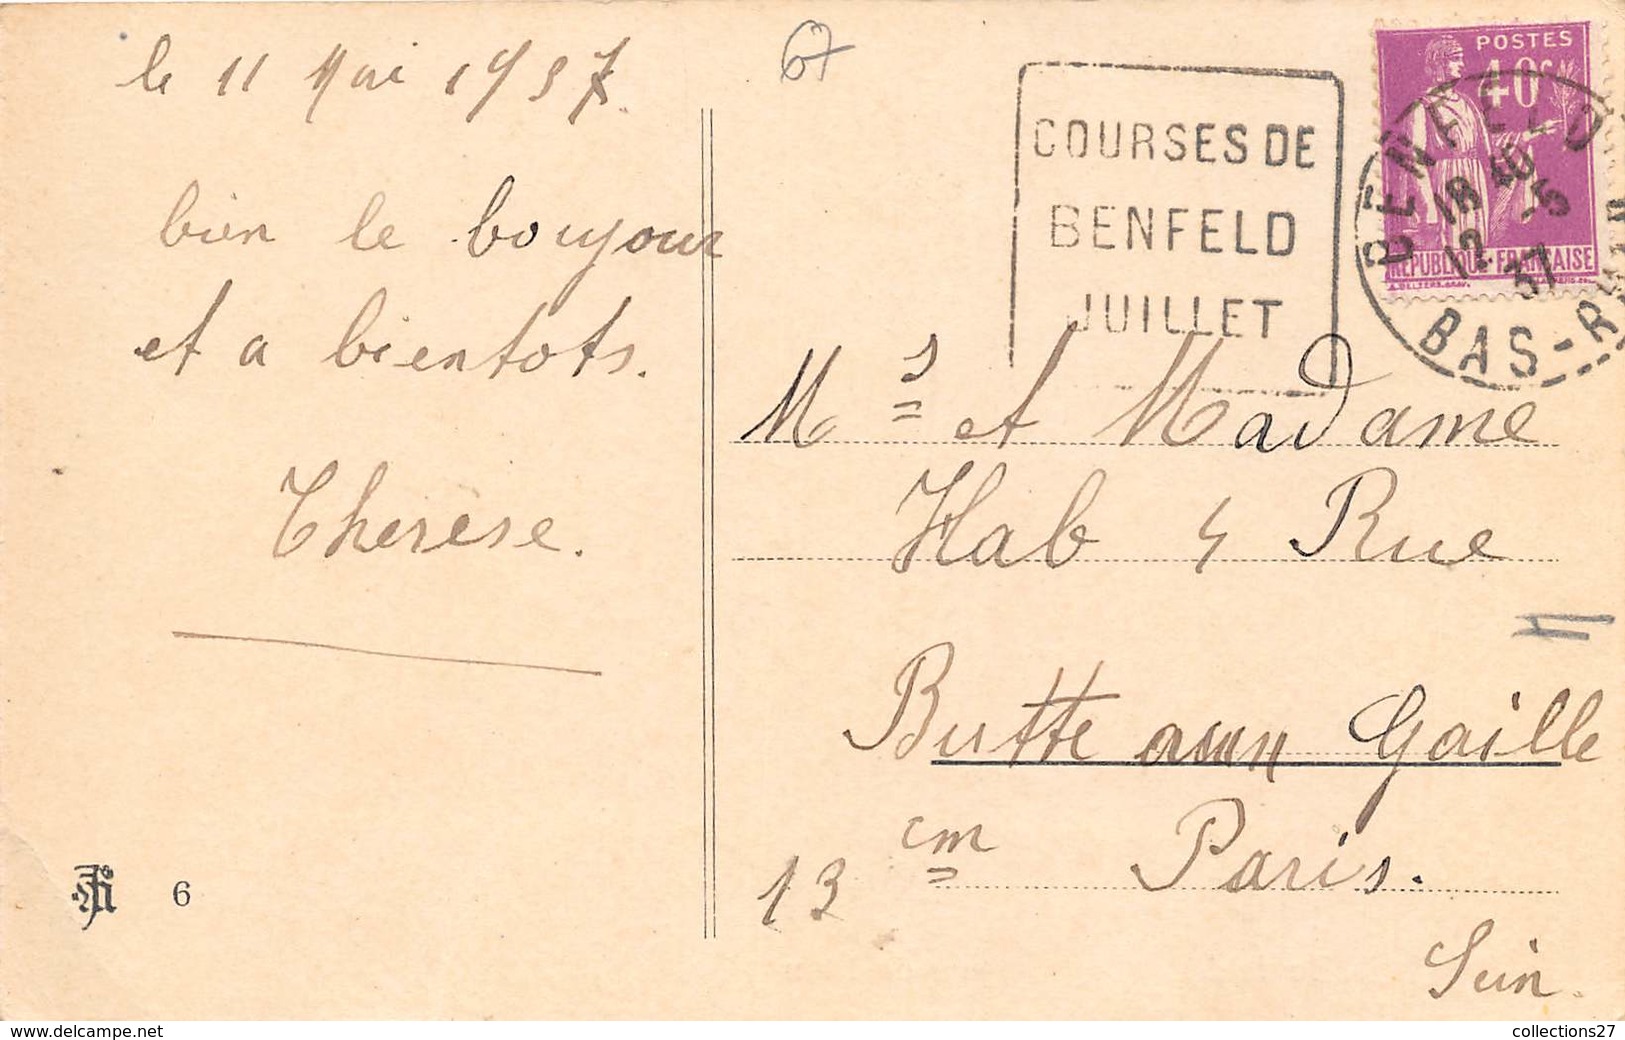 le 11 Mai 1937.
bien le boujour
et a bientots.
Therèse.
6
67
COURSES DE
BENFELD
JUILLET
POSTES
40c
REPUBLIQUE·FRANÇAISE
BENFELD
18 40
12 -5
37
BAS-R
Ms et Madame
Hab 4 Rue
Butte aux Gaille
13 em Paris.
Sein.
www.delcampe.net
collections27